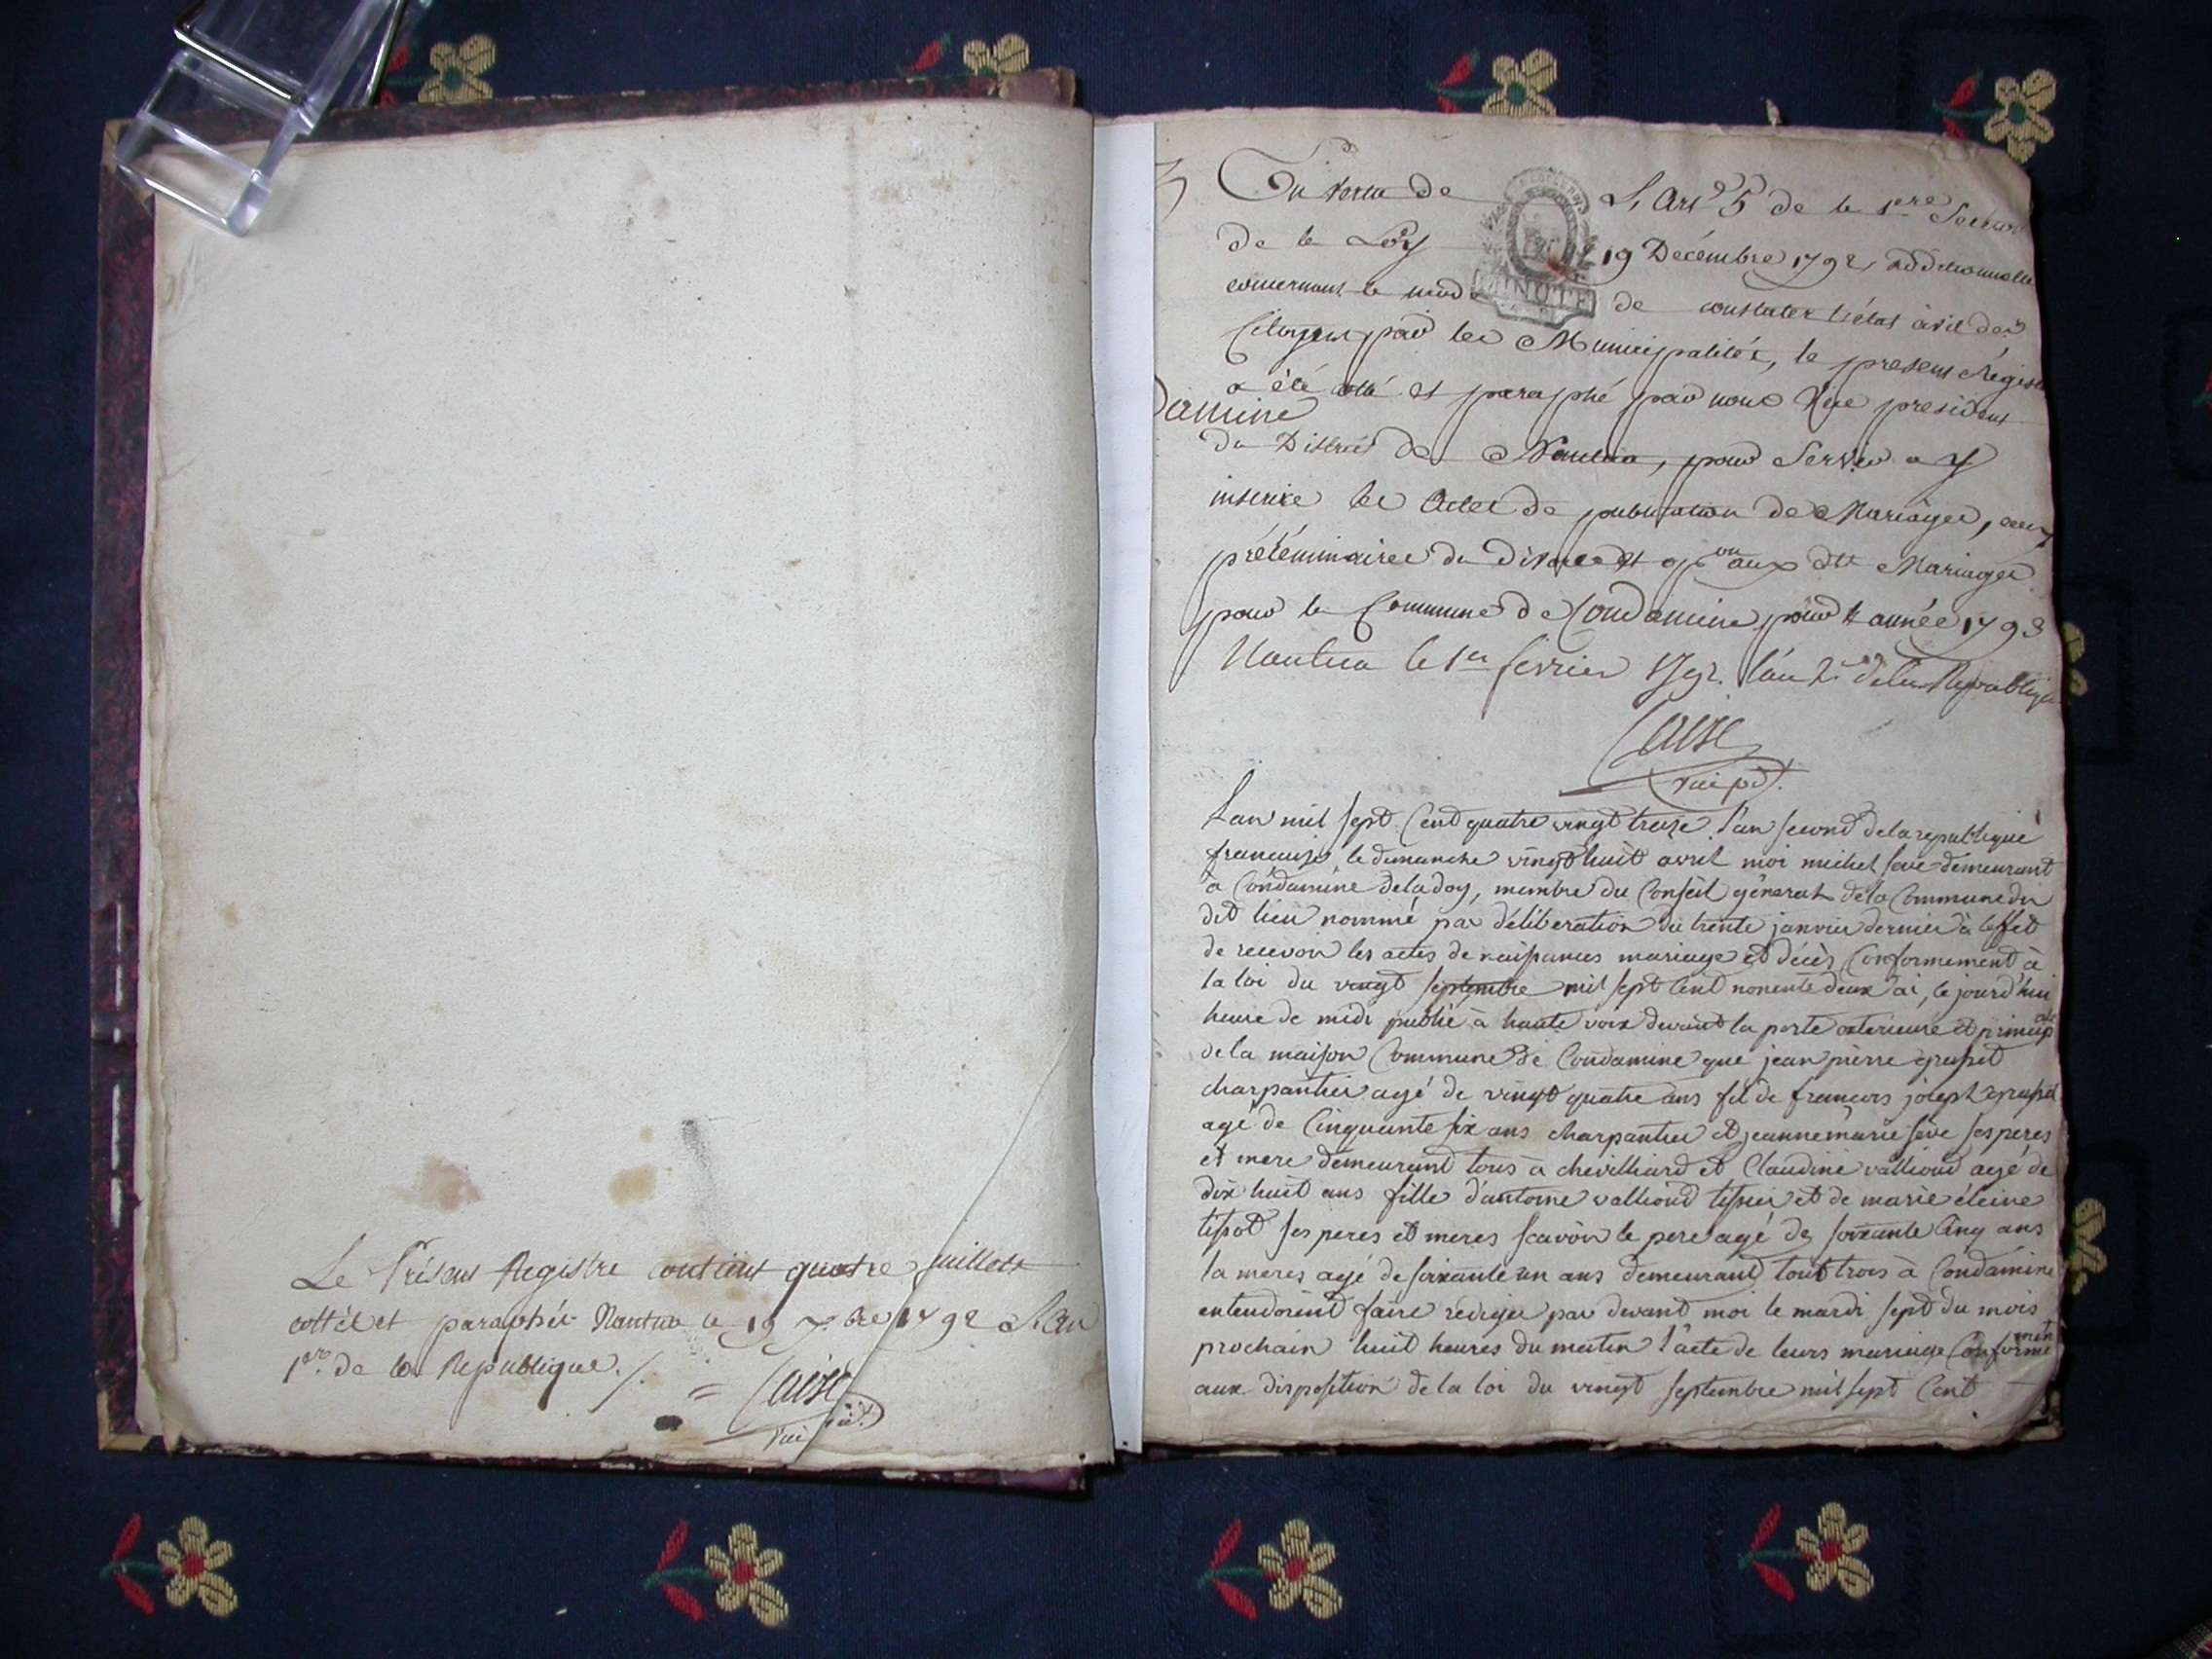 Le Présent Registre contient quatre feuillets
cottéz et paraphéz Nantua le 19 Xbre 1792 L'an
1ere de la Republique ./.
vice pdt.
En vertu de L'Art 5 de la 1ere Section
de la Loy 19 Décembre 1792, additionnelle
MINUTE
concernant le mode de constater l'état civil des
Citoyens par les Municipalités, le present Régistre
a été cotté et paraphé par nous Vice président
Damine
du District de Nantua, pour Servir a y
inscrire les Actes de publication de Mariages, ceux
préléminaires du Divorce et opon aux dts Mariages
pour la Commune de Condamine pour l'année 1793
Nantua le 1er fevrier 1792. l'an 2e de la Republique
vice pdt.
L'an mil sept Cent quatre vingt treize l'an second de la republique
francaise, le dimanche vingt huit avril moi michel seve demeurant
à Condamine de la doy, membre du Conseil général de la Commune du
dit lieu nommé par déliberation du trente janvier dernier à leffet
de recevoir les actes de naissances mariage et décès Conformement à
la loi du vingt septembre mil sept Cent nonente deux ai, ce jourd'hui
heure de midi publié à haute voix devant la porte exterieure et principale
de la maison Commune de Condamine que jean pierre
charpantier agé de vingt quatre ans fil de francois joseph
agé de Cinquante six ans charpantier et jeanne marie seve ses peres
et mere demeurant tous à chevilliard et Claudine vallioud agé de
dix huit ans fille d'antoine vallioud tissier et de marie
tissot ses peres et meres scavoir le pere agé de soixante Cinq ans
la meres agé de soixante un ans demeurant tout trois à Condamine
entendoient faire rediger par devant moi le mardi sept du mois
prochain huit heures du matin l'acte de leurs mariage Conformément
aux disposition de la loi du vingt septembre mil sept Cent